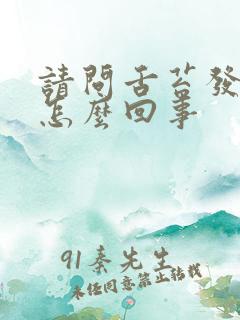 請問舌苔發
怎麼回事
91秦先生
未经同意禁止转载